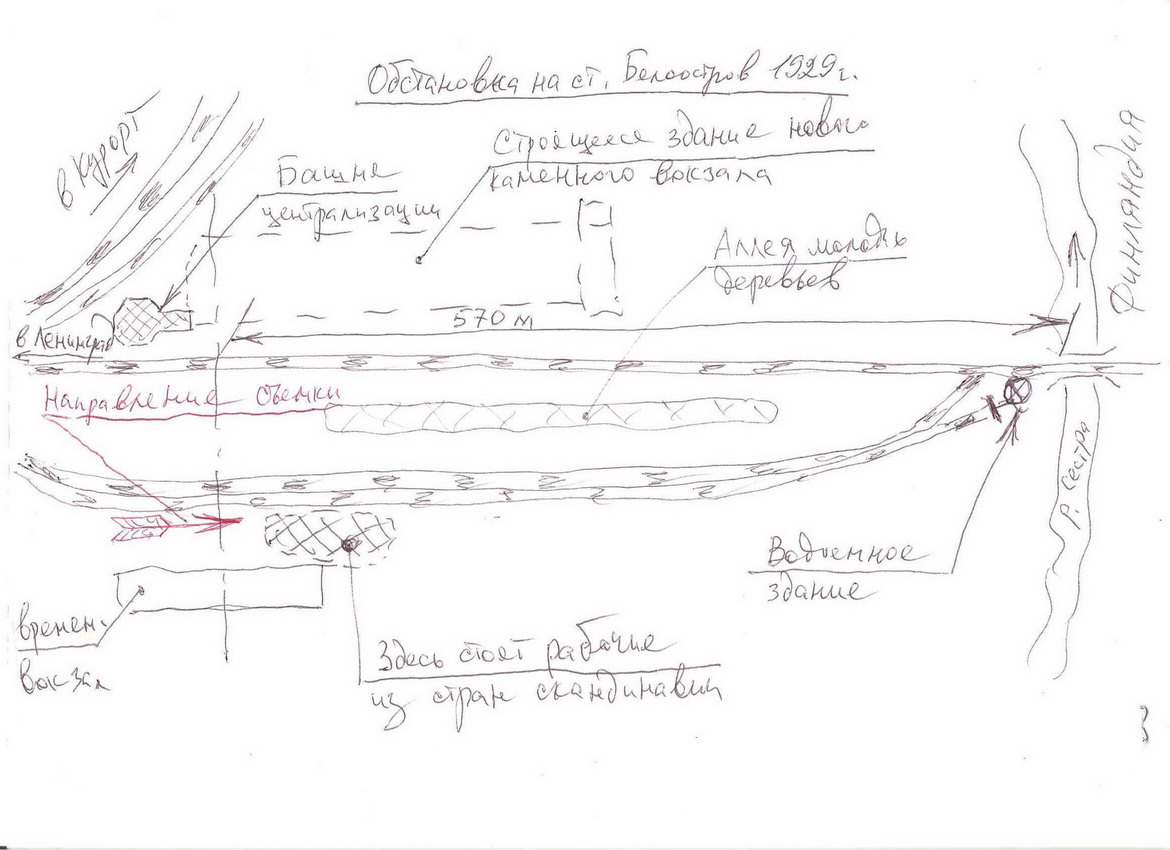 Обстановка на ст. Белоостров 1929г.
в Курорт
Строящееся здание нового
каменного вокзала
Башня
централизации
Аллея молодых
деревьев
Финляндия
570 м
в Ленинград
Направление съемки
р. Сестра
Водоемное
здание
времен.
вокзал
Здесь стоят рабочие
из стран скандинавии
3